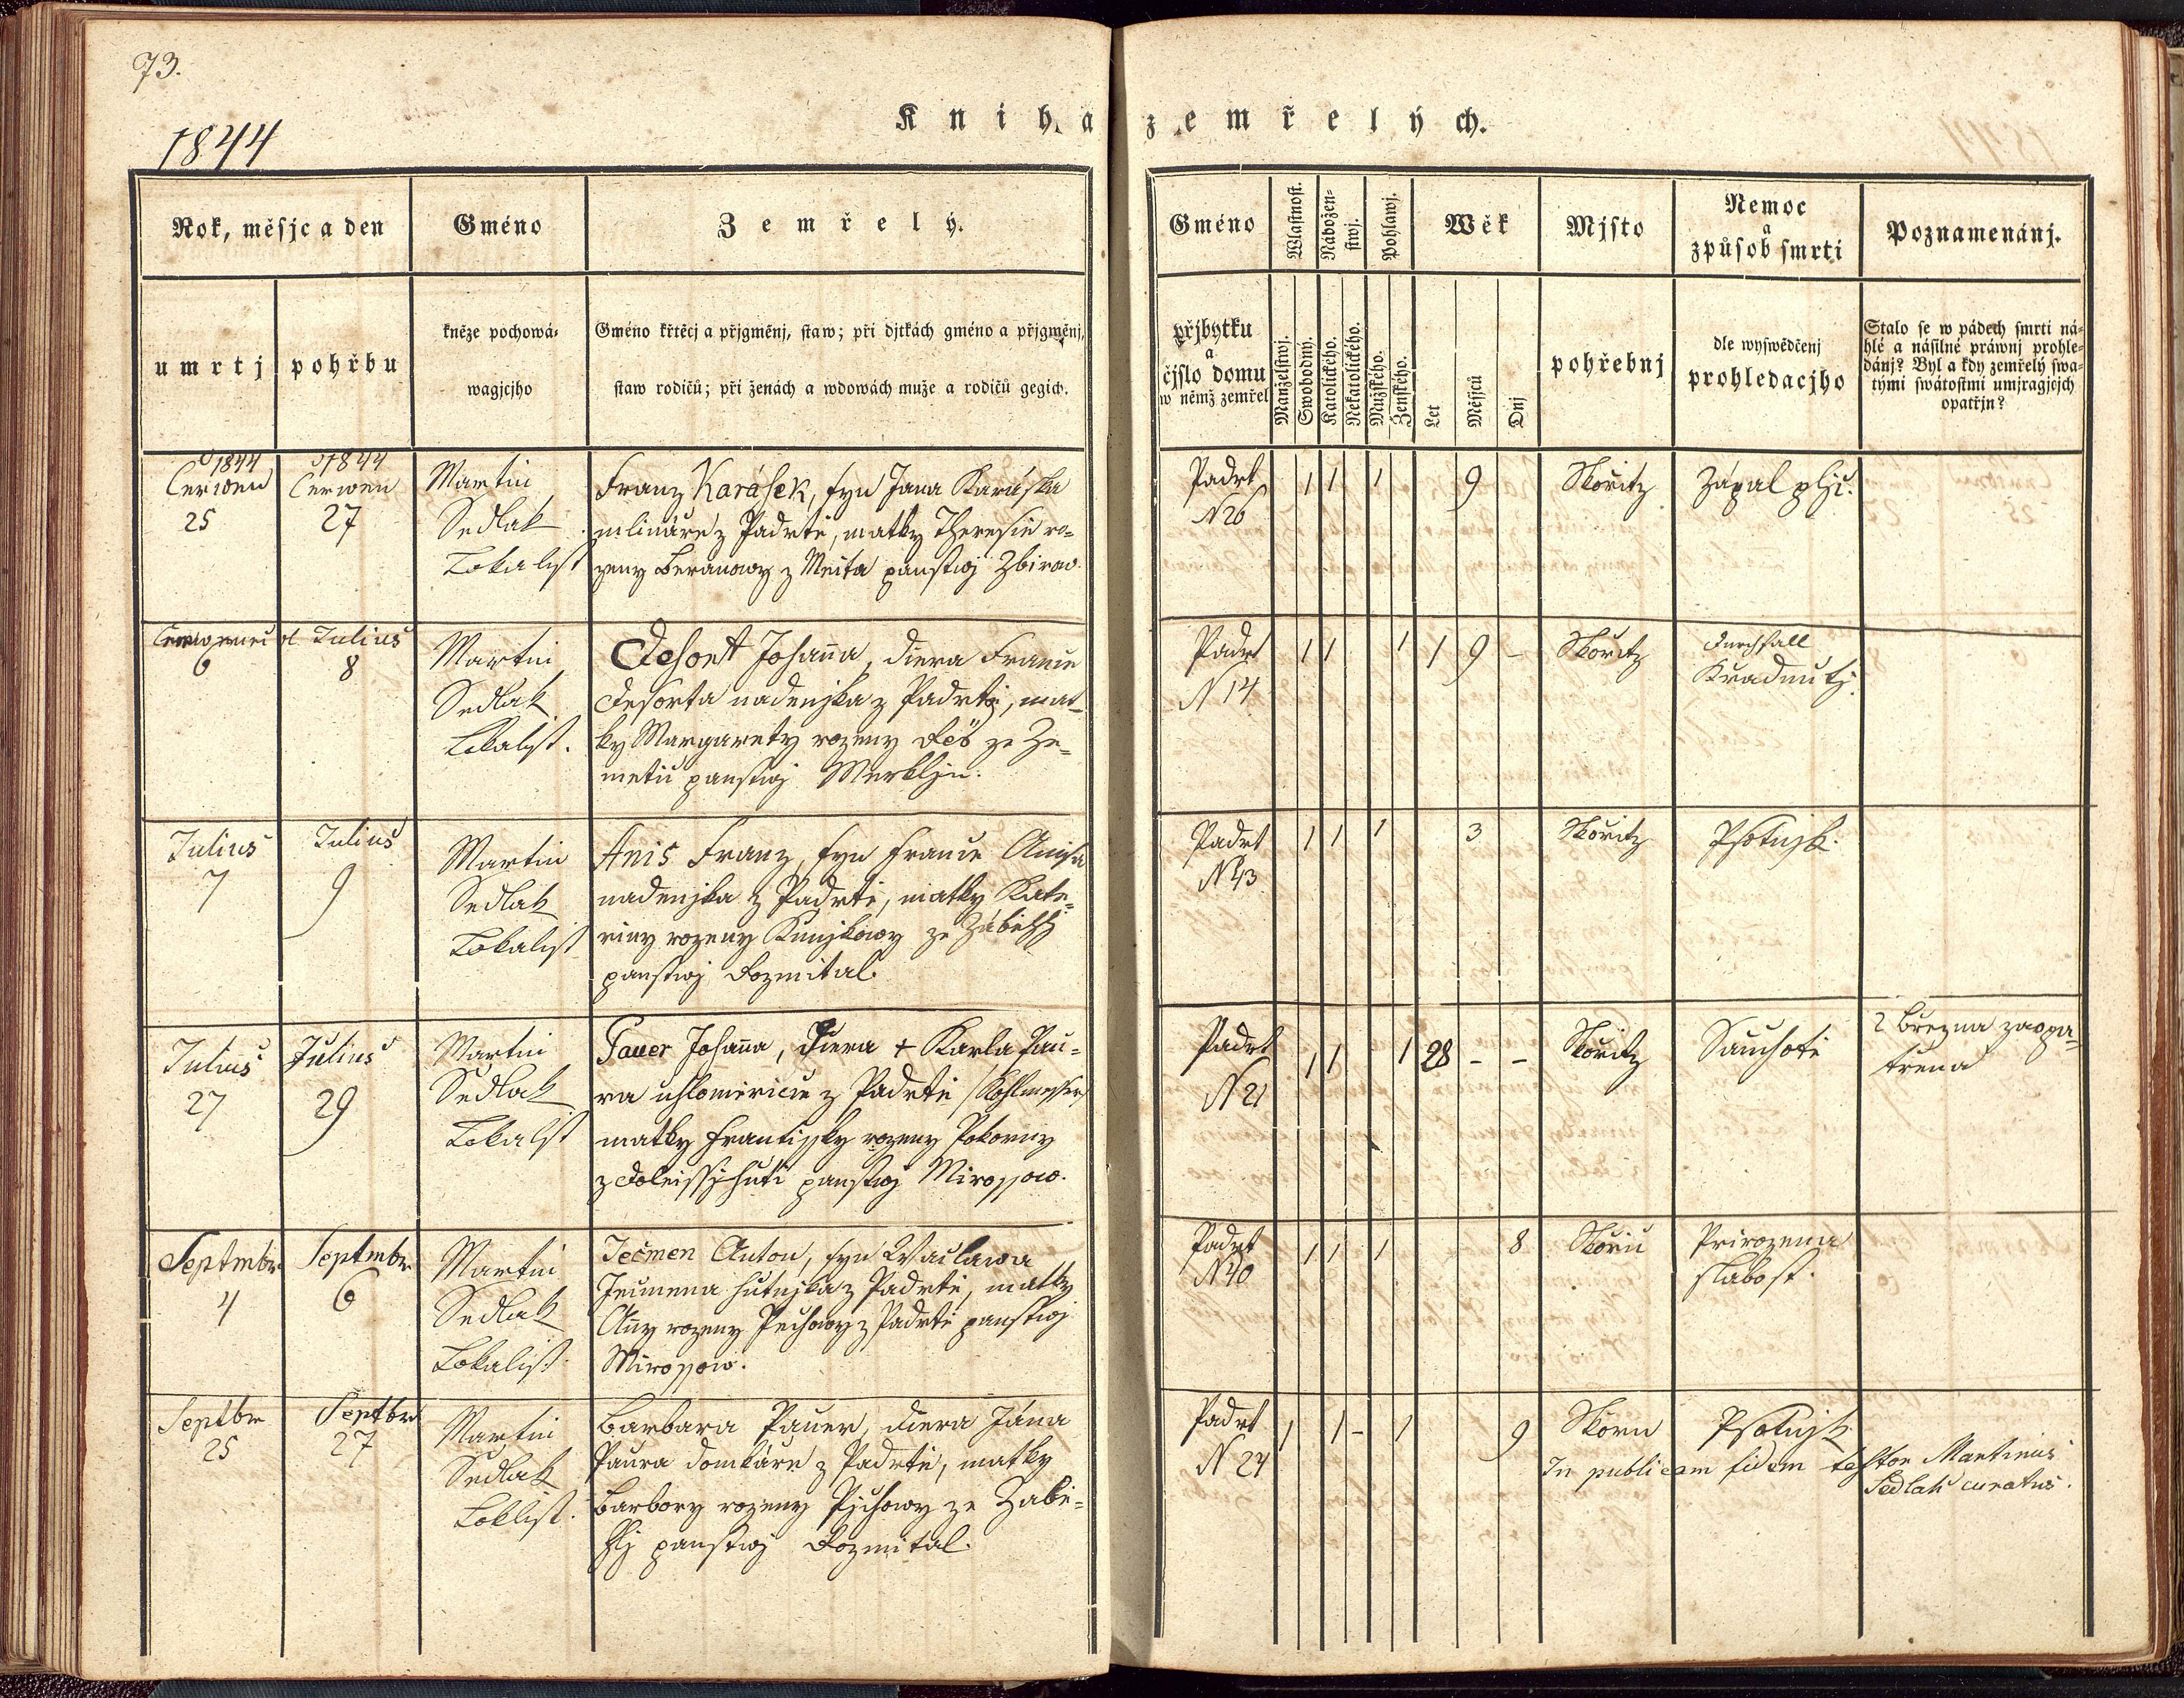 73.
Kniha zemřelých.
1844
Rok, měsjc a den
Gméno
Zemřelý.
Gméno
Wlastnost.
Náboženstwj.
Pohlawj.
Wěk
Mjsto
Nemoc
a
způsob smrti
Poznamenánj.
umrtj
pohřbu
kněze pochowá-
wagjcjho
Gméno křtěcj a přjgměnj, staw; při djtkách gméno a přjgměnj,
staw rodičů; při ženách a wdowách muže a rodičů gegich.
přjbytku
a
čjslo domu
w němž zemřel
Manželstwj.
Swobodný.
Katolického.
Nekatolického.
Mužského.
Ženského.
Let
Měsjců
Dnj
pohřebnj
dle wyswědčenj
prohledacjho
Stalo se w pádech smrti ná-
hlé a násilné práwnj prohle-
dánj? Byl a kdy zemřelý swa-
tými swátostmi umjragjcjch
opatřjn?
1844
Cerwen
25
1844
Cerwen
27
Martin
Sedlak
Lokalist
Franz Karásek, syn Jana Karáska
mlináře z Padrtě, matky Theresie ro-
zeny Beranowy z Meita panstwj Zbirow.
Padrt
N 26
1 1 1 9
Skořitz
Zápal plic.
6
Julius
8
Martin
Sedlak
Lokalist.
Desort Johanna, dcera Franze
Desorta nadenjka z Padrtě, mat-
ky Margarety rozeny ze Ze-
metic panstwj Merkljn.
Padrt
N 14
1 1 1 1 9 -
Skořitz
Durchfall
Julius
7
Julius
9
Martin
Sedlak
Lokalist
Anis Franz, syn Franze Anisa
nadenjka z Padrtě, matky Kate-
řiny rozeny Kunjkowy ze Záběhlj
panstwj Rozmital.
Padrt
N 43
1 1 1 3
Skořitz
Psotnjk.
Julius
27
Julius
29
Martin
Sedlak
Lokalist
Pauer Johanna, Dcera + Karla Pau-
ra uhloměřice z Padrtě /Kohlmesser/
matky Frantissky rozeny Pokorny
z Doleissj huti panstwj Mirossow.
Padrt
N 21
1 1 1 28 - -
Skořitz
Sauchotě
2 Brezna zaopa-
třena
Septmbr
4
Septmbr
6
Martin
Sedlak
Lokalist.
Ječmen Anton, syn Waclawa
Jecmena hutnjka z Padrtě, matky
Anny rozeny Pechowy z Padrtě panstwj
Mirossow.
Padrt
N 40
1 1 1 8
Skořic
Prirozena
slabost.
Septbr
25
Septbr
27
Martin
Sedlak
Loklist.
Barbara Pauer, dcera Jána
Paura domkáře z Padrtě, matky
Barbory rozeny Pjchowy ze Zabě-
hlj panstwj Rozmital.
Padrt
N 24
1 1 - 1 9
Skoric
Psotnjk
In publicam fidem testor Martinus
Sedlak curatus.